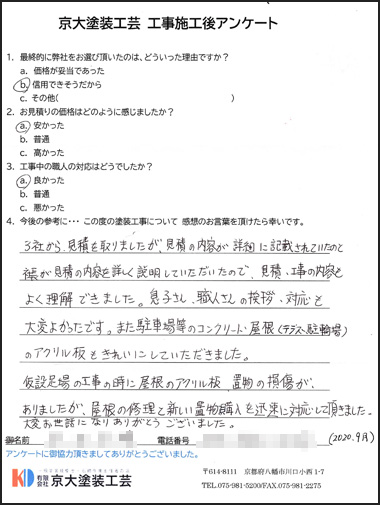 京大塗装工芸 工事施工後アンケート
1．最終的に弊社をお選び頂いたのは、どういった理由ですか？
a．価格が妥当であった
b．信用できそうだから
c．その他（ ）
2．お見積りの価格はどのように感じましたか？
a．安かった
b．普通
c．高かった
3．工事中の職人の対応はどうでしたか？
a．良かった
b．普通
c．悪かった
4．今後の参考に・・・ この度の塗装工事について 感想のお言葉を頂けたら幸いです。
3社から、見積を取りましたが、見積の内容が詳細に記載されていたのと
様が見積の内容を詳しく説明していただいたので、見積、工事の内容を
よく理解できました。息子さん、職人さんの挨拶、対応も
大変よかったです。また駐車場等のコンクリート・屋根(テラス、駐輪場)
のアクリル板もきれいにしていただきました。
仮設足場の工事の時に屋根のアクリル板、置物の損傷が、
ありましたが、屋根の修理と新しい置物購入を迅速に対応して頂きました。
大変お世話になりありがとうございました。
御名前 電話番号 (2020.9月)
アンケートに御協力頂きましてありがとうございました。
KD 有限会社 京大塗装工芸
〒614-8111 京都府八幡市川口小西 1-7
TEL.075-981-5200/FAX.075-981-2275